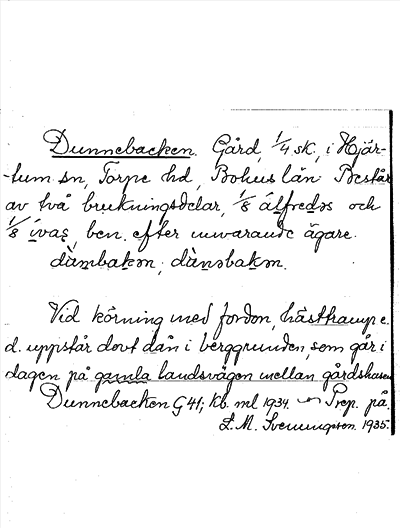 Dunnebacken. Gård, 1/4 sk, i Hjär-
-tum sn, Torpe hd, Bohus län. Består
av två brukningsdelar, 1/8 álfredəs och
1/8 ívas, ben. efter nuvarande ägare.
dùmbakən; dùnəbakən.
Vid körning med fordon, hästtramp e.
d. uppstår dovt dån i berggrunden, som går i
dagen på gamla landsvägen mellan gårdshusen
Dunnebacken G 41; Kb. ml 1934. Prep. på.
L. M. Svenungson. 1935.